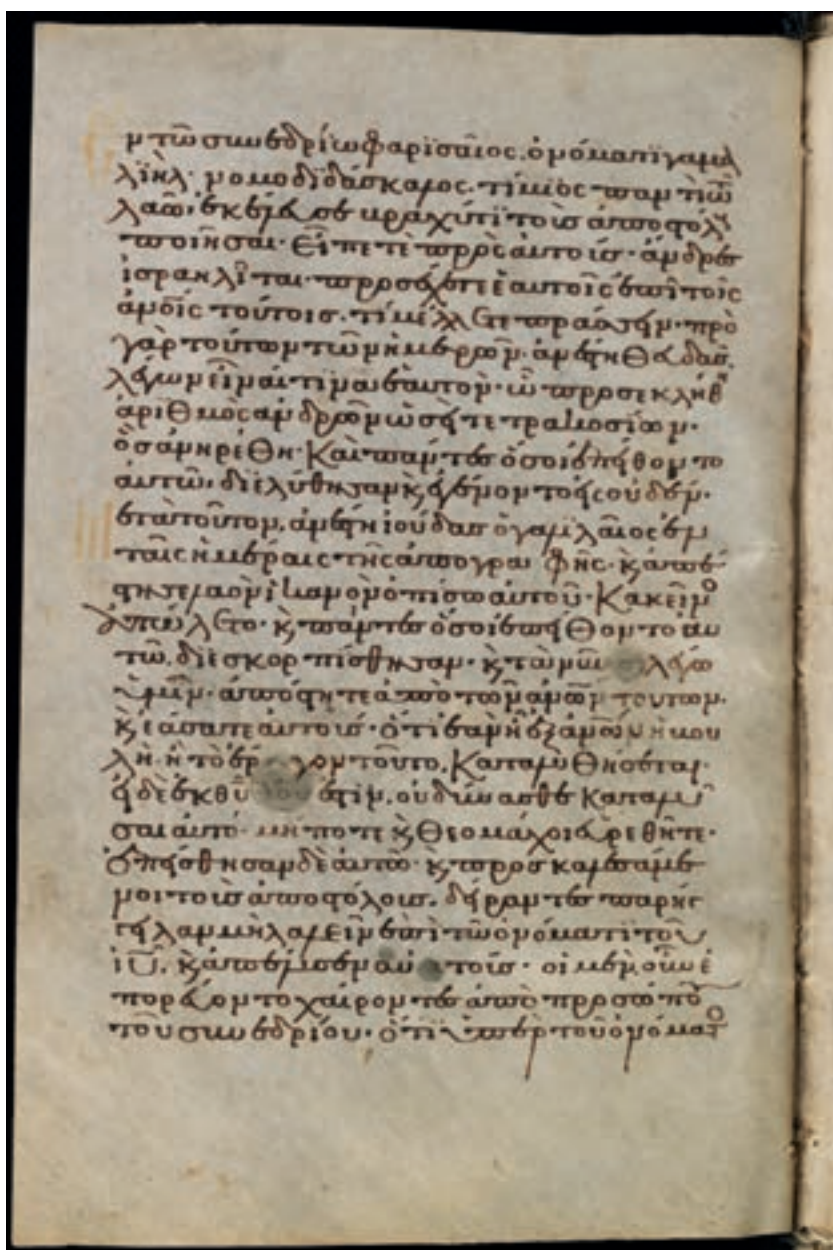 ν τῶ συνεδρίω φαρϊσαῖος. ὀνόματι γαμα
λϊὴλ· νομοδϊδάσκαλος. τίμϊος παντὶ τῶ
λαῶ· ἐκέλευσε βραχύ τϊ τοὺς ἀποστόλους
ποιῆσαι· Εἶπε τὲ πρὸς αὐτούς· ἄνδρες
ἰσραηλῖται· προσέχετε ἑαυτοῖς ἐπὶ τοῖς
ἀνοῖς τούτοις. τί μέλλετε πράσσειν· πρὸ
γὰρ τούτων τῶν ἡμερῶν. ἀνέστη θευδᾶς.
λέγων εἶναι τινα ἑαυτόν· ὧ προσεκλήθη
ἀριθμὸς ἀνδρῶν ὡσεὶ τετρακοσίων·
ὃς ἀνηρέθη· Καὶ πάντες ὅσοι ἐπείθοντο
αὐτῶ· διελύθησαν κ ἐγένοντο εἰς οὐδέν·
ετὰ τοῦτον. ἀνέστη ἰούδας ὁ γαλιλαῖος ἐν
ταῖς ἡμέραις τῆς ἀπογραφῆς· κ ἀπέ
στησε λαὸν ἱκανὸν ὀπίσω αὐτοῦ· Κακεῖνος
ἀπώλετο· κ πάντες ὅσοι ἐπείθοντο αὐ
τῶ. διεσκορπίσθησαν· κ τὰ νῦν λέγω
ὑμῖν· ἀπόστητε ἀπὸ τῶν ἀνων τούτων·
κ ἐάσατε αὐτούς· ὅτι ἐὰν ἦ ἐξ ἀνων ἡ βου
λὴ ἢ τὸ ἔργον τοῦτο. Καταλυθήσεται·
εἰ δὲ ἐκ θυ ἐστϊν. οὐ δύνασθε καταλῦ
σαι αὐτό· μή ποτε κ θεομάχοι εὑρεθῆτε·
ἐπείσθησαν δὲ αὐτῶ· κ προσκαλεσάμε
νοι τοὺς ἀποστόλους. δείραντες παρήγ
γειλαν μὴ λαλεῖν ἐπὶ τῶ ὀνόματϊ τοῦ
ἰυ. κ ἀπέλυσεν αὐτούς· οἱ μὲν οὖν ἐ
πορεύοντο χαίροντες ἀπὸ προσώπου
τοῦ συνεδρίου· ὅτϊ ὑπὲρ τοῦ ὀνόματος